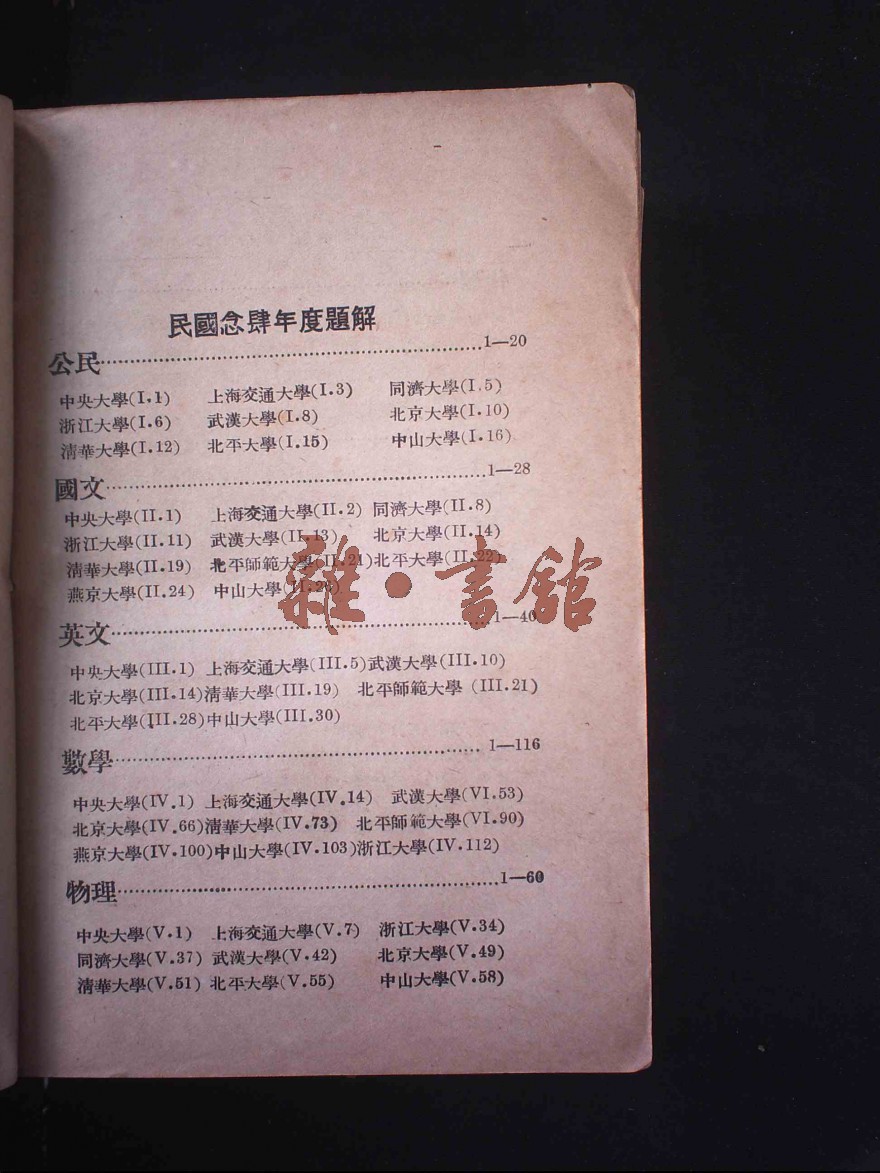 民國念肆年度題解
公民……1—20
中央大學(I.1) 上海交通大學(I.3) 同濟大學(I.5)
浙江大學(I.6) 武漢大學(I.8) 北京大學(I.10)
清華大學(I.12) 北平大學(I.15) 中山大學(I.16)
國文……1—28
中央大學(II.1) 上海交通大學(II.2) 同濟大學(II.8)
浙江大學(II.11) 武漢大學(II.13) 北京大學(II.14)
清華大學(II.19) 北平師範大學(II.21) 北平大學(II.22)
燕京大學(II.24) 中山大學
雜·書館
英文……1—40
中央大學(III.1) 上海交通大學(III.5) 武漢大學(III.10)
北京大學(III.14) 清華大學(III.19) 北平師範大學(III.21)
北平大學(III.28) 中山大學(III.30)
數學……1—116
中央大學(IV.1) 上海交通大學(IV.14) 武漢大學(VI.53)
北京大學(IV.66) 清華大學(IV.73) 北平師範大學(VI.90)
燕京大學(IV.100) 中山大學(IV.103) 浙江大學(IV.112)
物理……1—60
中央大學(V.1) 上海交通大學(V.7) 浙江大學(V.34)
同濟大學(V.37) 武漢大學(V.42) 北京大學(V.49)
清華大學(V.51) 北平大學(V.55) 中山大學(V.58)